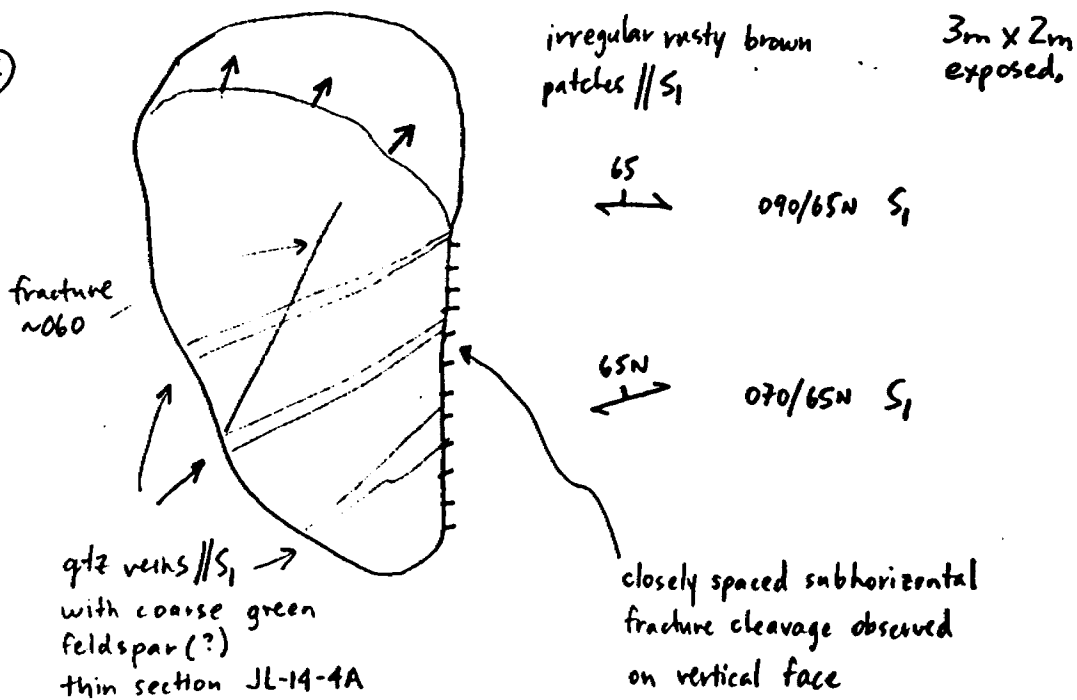 irregular rusty brown
patches // S₁
3m x 2m
exposed.
65
090/65N S₁
fracture
~060
65N
070/65N S₁
qtz veins // S₁
with coarse green
feldspar (?)
thin section JL-14-4A
closely spaced subhorizontal
fracture cleavage observed
on vertical face